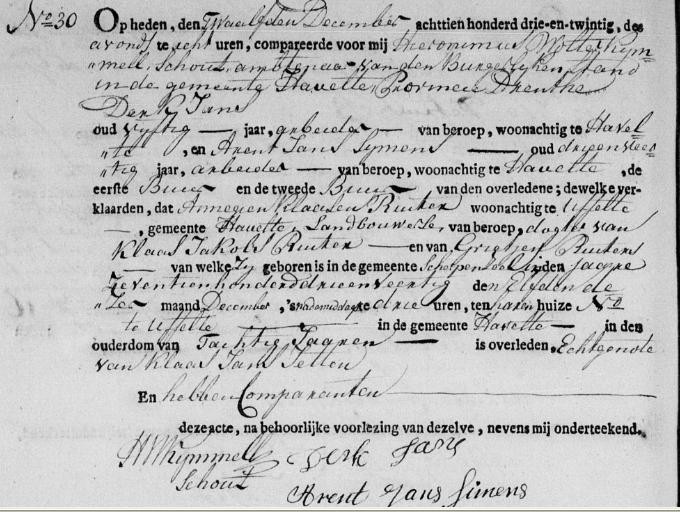 No 30 Op heden, den Twaalfden December achttien honderd drie-en-twintig, des
avonds te acht uren, compareerde voor mij Hieronimus Wolter Kym=
"mell, Schout, ambtenaar van den Burgerlyken stand
in de gemeente Havelte Provincie Drenthe
Derk Jans
oud vyftig jaar, arbeider van beroep, woonachtig te Havel
"te , en Arent Jans Symens oud drieenveer
"tig jaar, arbeider van beroep, woonachtig te Havelte , de
eerste Buur en de tweede Buur van den overledene; dewelke ver-
klaarden, dat Annegien Klaasen Ruiter woonachtig te Uffelte
, gemeente Havelte, Landbouwersse, van beroep, dogter van
Klaas Jakobs Ruiter en van Grietjen Ruiters
van welke Zy geboren is in de gemeente in den jaare
Zeventienhonderddrieenveertig den Elfden de
"zer maand December, 's namiddags te drie uren, ten haren huize No
te Uffelte in de gemeente Havelte in den
ouderdom van Tachtig Jaaren is overleden, Echtgenote
van Klaas Jans
En hebben Comparanten
deze acte, na behoorlijke voorlezing van dezelve, nevens mij onderteekend.
HWKymmell Derk Jans
Schout
Arent Jans Simens